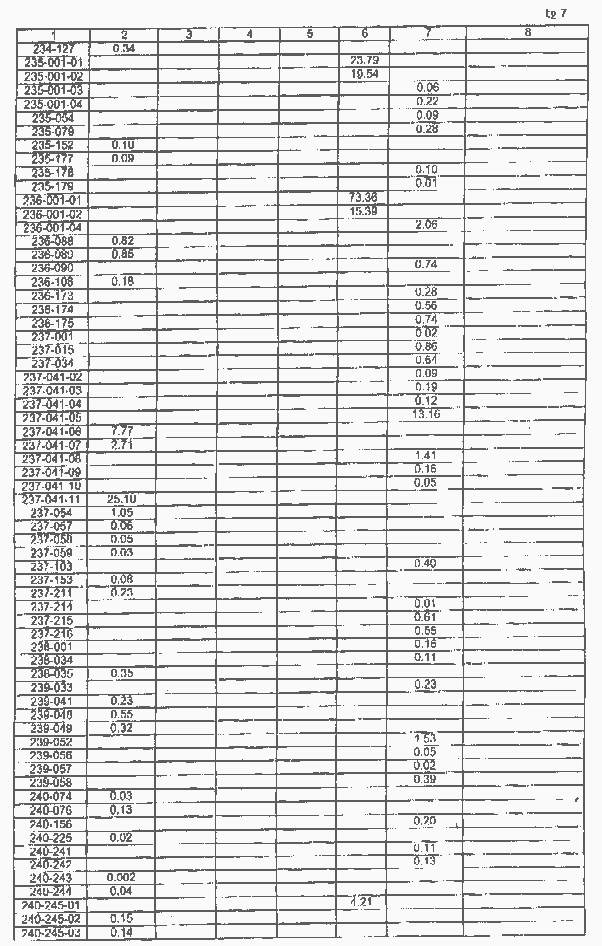 էջ 7
1 2 3 4 5 6 7 8
234-127 0.34
235-001-01 23.79
235-001-02 19.54
235-001-03 0.06
235-001-04 0.22
235-054 0.09
235-079 0.28
235-152 0.10
235-177 0.09
235-178 0.10
235-179 0.01
236-001-01 73.36
236-001-02 15.39
236-001-04 2.06
236-088 0.82
236-089 0.86
236-090 0.74
236-108 0.18
236-173 0.28
236-174 0.56
236-175 0.74
237-001 0.02
237-015 0.86
237-034 0.61
237-041-02 0.09
237-041-03 0.19
237-041-04 0.12
237-041-05 13.16
237-041-06 7.77
237-041-07 2.71
237-041-08 1.41
237-041-09 0.16
237-041-10 0.05
237-041-11 25.10
237-054 1.05
237-057 0.06
237-058 0.05
237-059 0.03
237-103 0.40
237-153 0.08
237-211 0.23
237-214 0.01
237-215 0.61
237-216 0.55
238-001 0.16
238-034 0.11
238-035 0.35
239-033 0.23
239-041 0.23
239-048 0.55
239-049 0.32
239-052 1.53
239-056 0.05
239-057 0.02
239-058 0.39
240-074 0.03
240-076 0.13
240-156 0.20
240-225 0.02
240-241 0.11
240-242 0.13
240-243 0.002
240-244 0.04
240-245-01 4.21
240-245-02 0.15
240-245-03 0.14